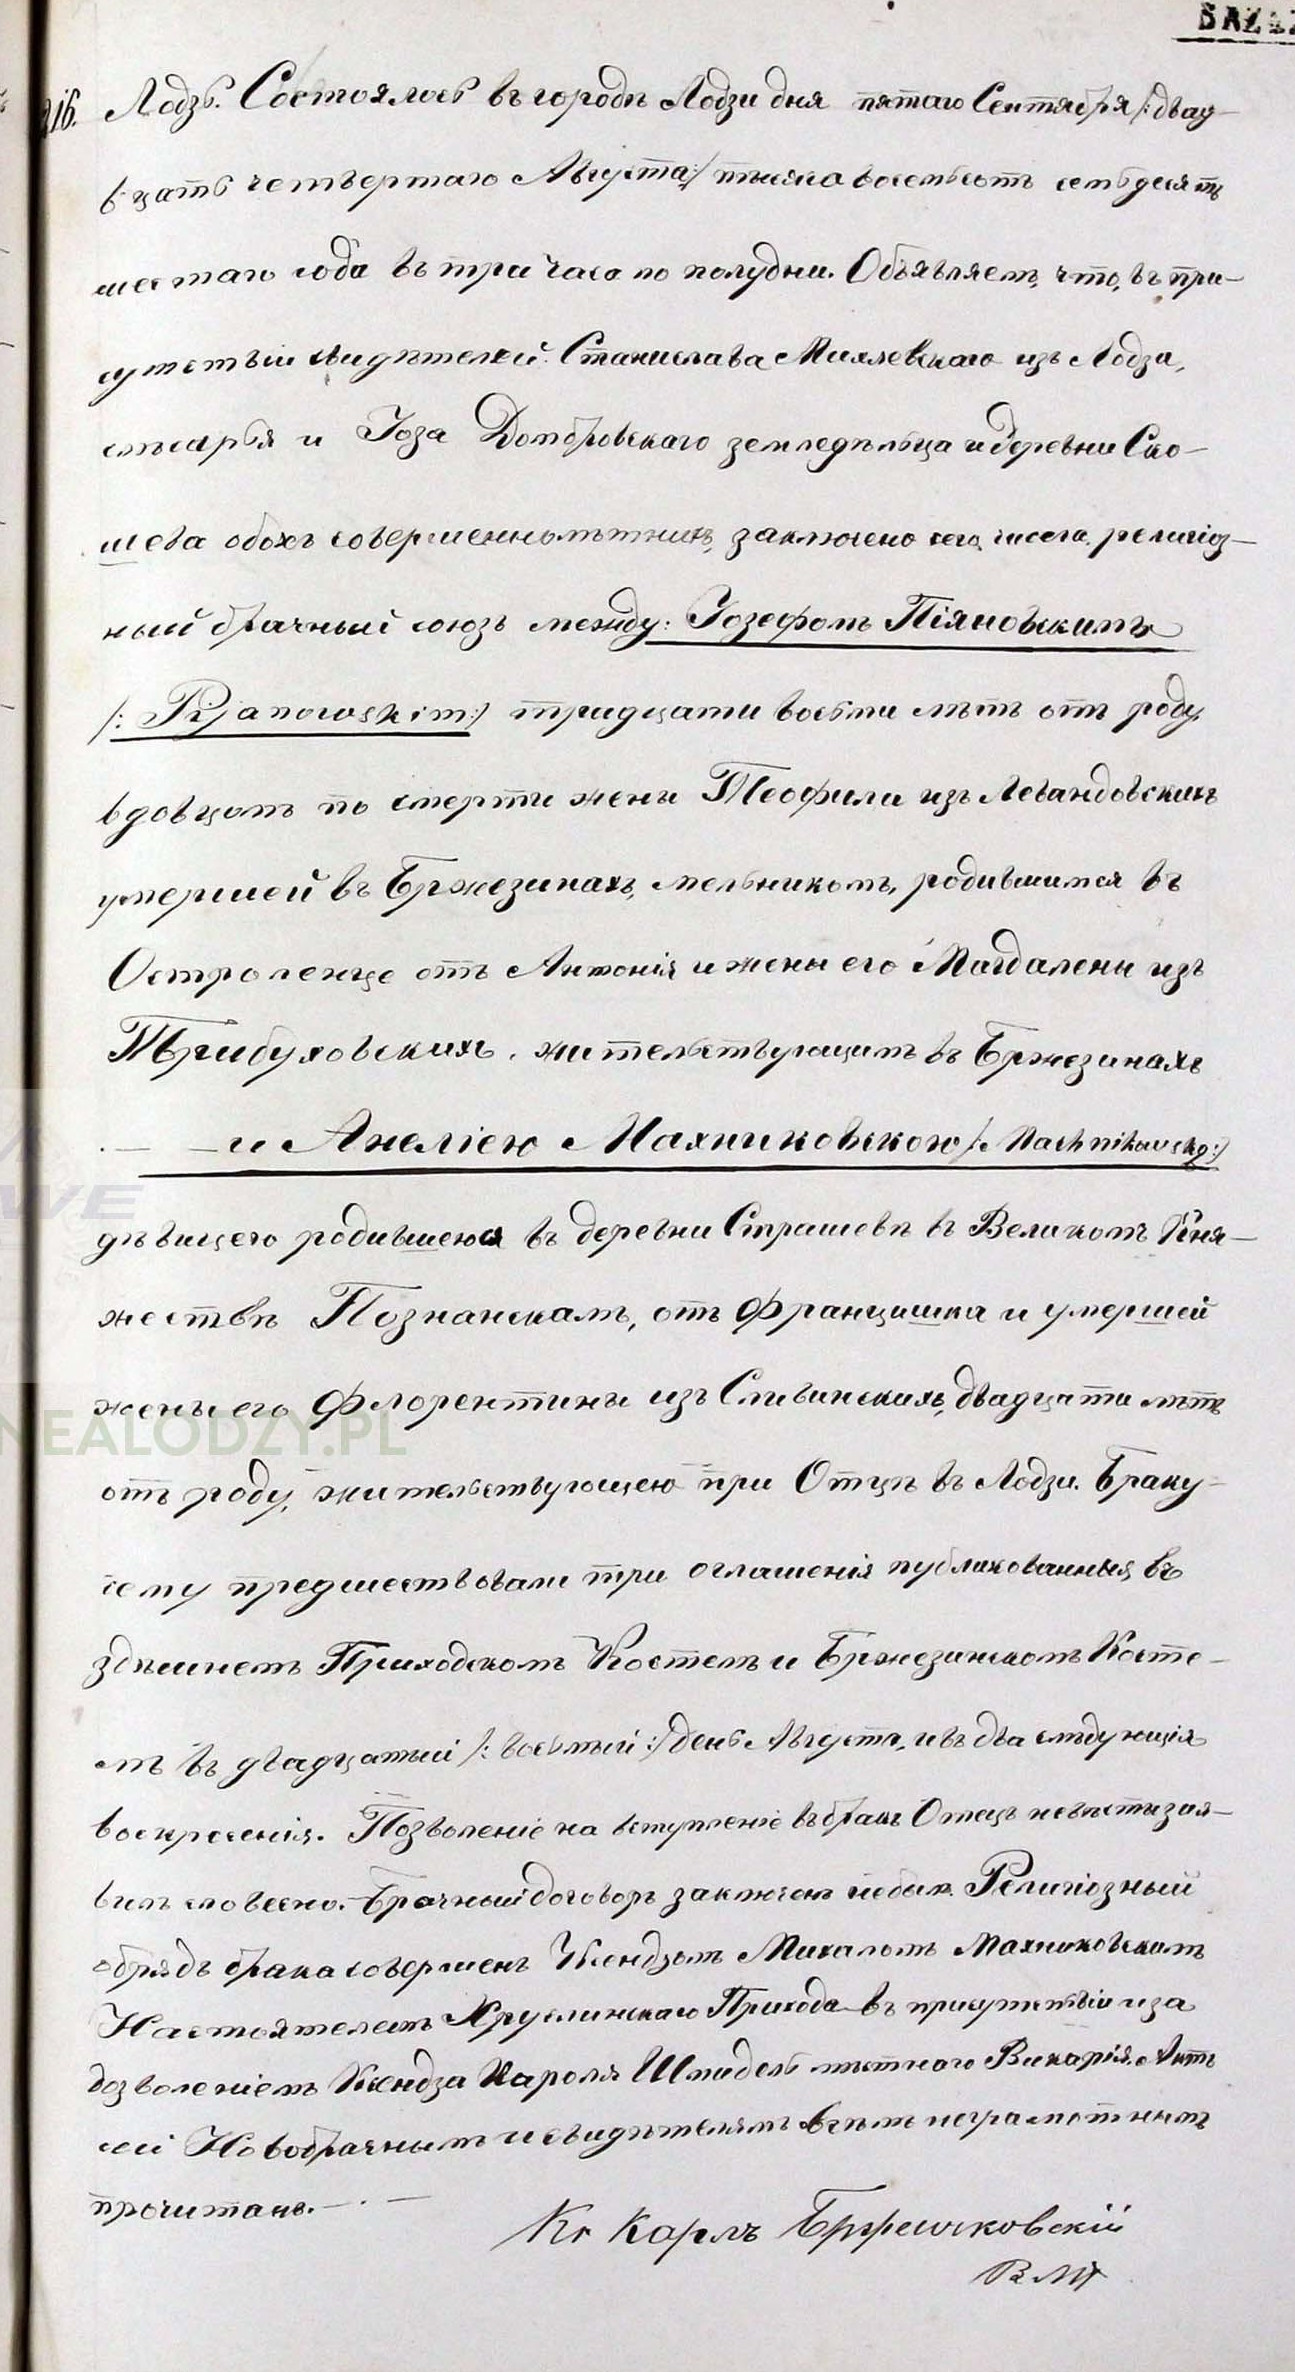 16. Лодзь. Состоялось въ городѣ Лодзи дня пятаго Сентября /: двад-
цать четвертаго Августа :/ тысяча восемьсотъ семьдесятъ
шестаго года въ три часа по полудни. Объявляемъ, что, въ при-
сутствіи свидѣтелей Станислава Михлевскаго изъ Лодза,
слѣсарья и Іоза Домбровскаго земледѣльца и деревни Ско-
шева обохъ совершеннолѣтнихъ, заключено сего числа религіоз-
ный брачный союзъ между: Іозефомъ Піяновскимъ
/: Pijanowskim :/ тридцати восьми лѣтъ отъ роду,
вдовцомъ по смерти жены Теофили изъ Левандовскихъ
умершей въ Бржезинахъ, мельникомъ, родившимся въ
Остроленце отъ Антонія и жены его Магдалены изъ
жительствующимъ въ Бржезинахъ
— и Анеліею Махниковскою /: Machnikowską :/
дѣвицею родившеюся въ деревни Страшевѣ въ Великомъ Кня-
жествѣ Познанскамъ, отъ Францишка и умершей
жены его Флорентины изъ Сливинскихъ, двадцати лѣтъ
отъ роду, жительствующею при Отцѣ въ Лодзи. Браку
сему предшествовали три оглашенія публикованныя въ
здѣшнемъ Приходскомъ Костелѣ и Бржезинскомъ Косте-
лѣ въ двадцатый /: восьмый :/ день Августа, и въ два слѣдующія
воскресенія. Позволеніе на вступленіе въ бракъ Отецъ невѣсты изъя-
вилъ словесно. Брачный договоръ заключенъ небылъ. Религіозный
обрядъ брака совершенъ Ксендзомъ Михаломъ Махниковскимъ
Настоятелемъ Хруслинскаго Прихода въ присутствіи и за
дозволеніемъ Ксендза Кароля Шмидель мѣстнаго Викарія. Актъ
сей Новобрачнымъ и свидѣтелямъ всѣмъ неграмотнымъ
прочитанъ. —
Кс Карлъ
NEALODZY.PL